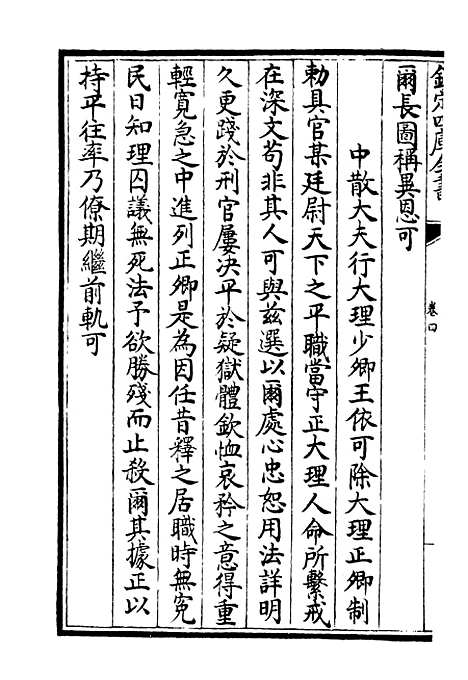 欽定四庫全書
卷四
爾長圖稱異恩可
中散大夫行大理少卿王依可除大理正卿制
勅具官某廷尉天下之平職當守正大理人命所繫戒
在深文苟非其人可與兹選以爾處心忠恕用法詳明
久更踐於刑官屢決平於疑獄體欽恤哀矜之意得重
輕寛急之中進列正卿是為因任昔釋之居職時無寃
民日知理囚議無死法予欲勝殘而止殺爾其據正以
持平往率乃僚期繼前軌可